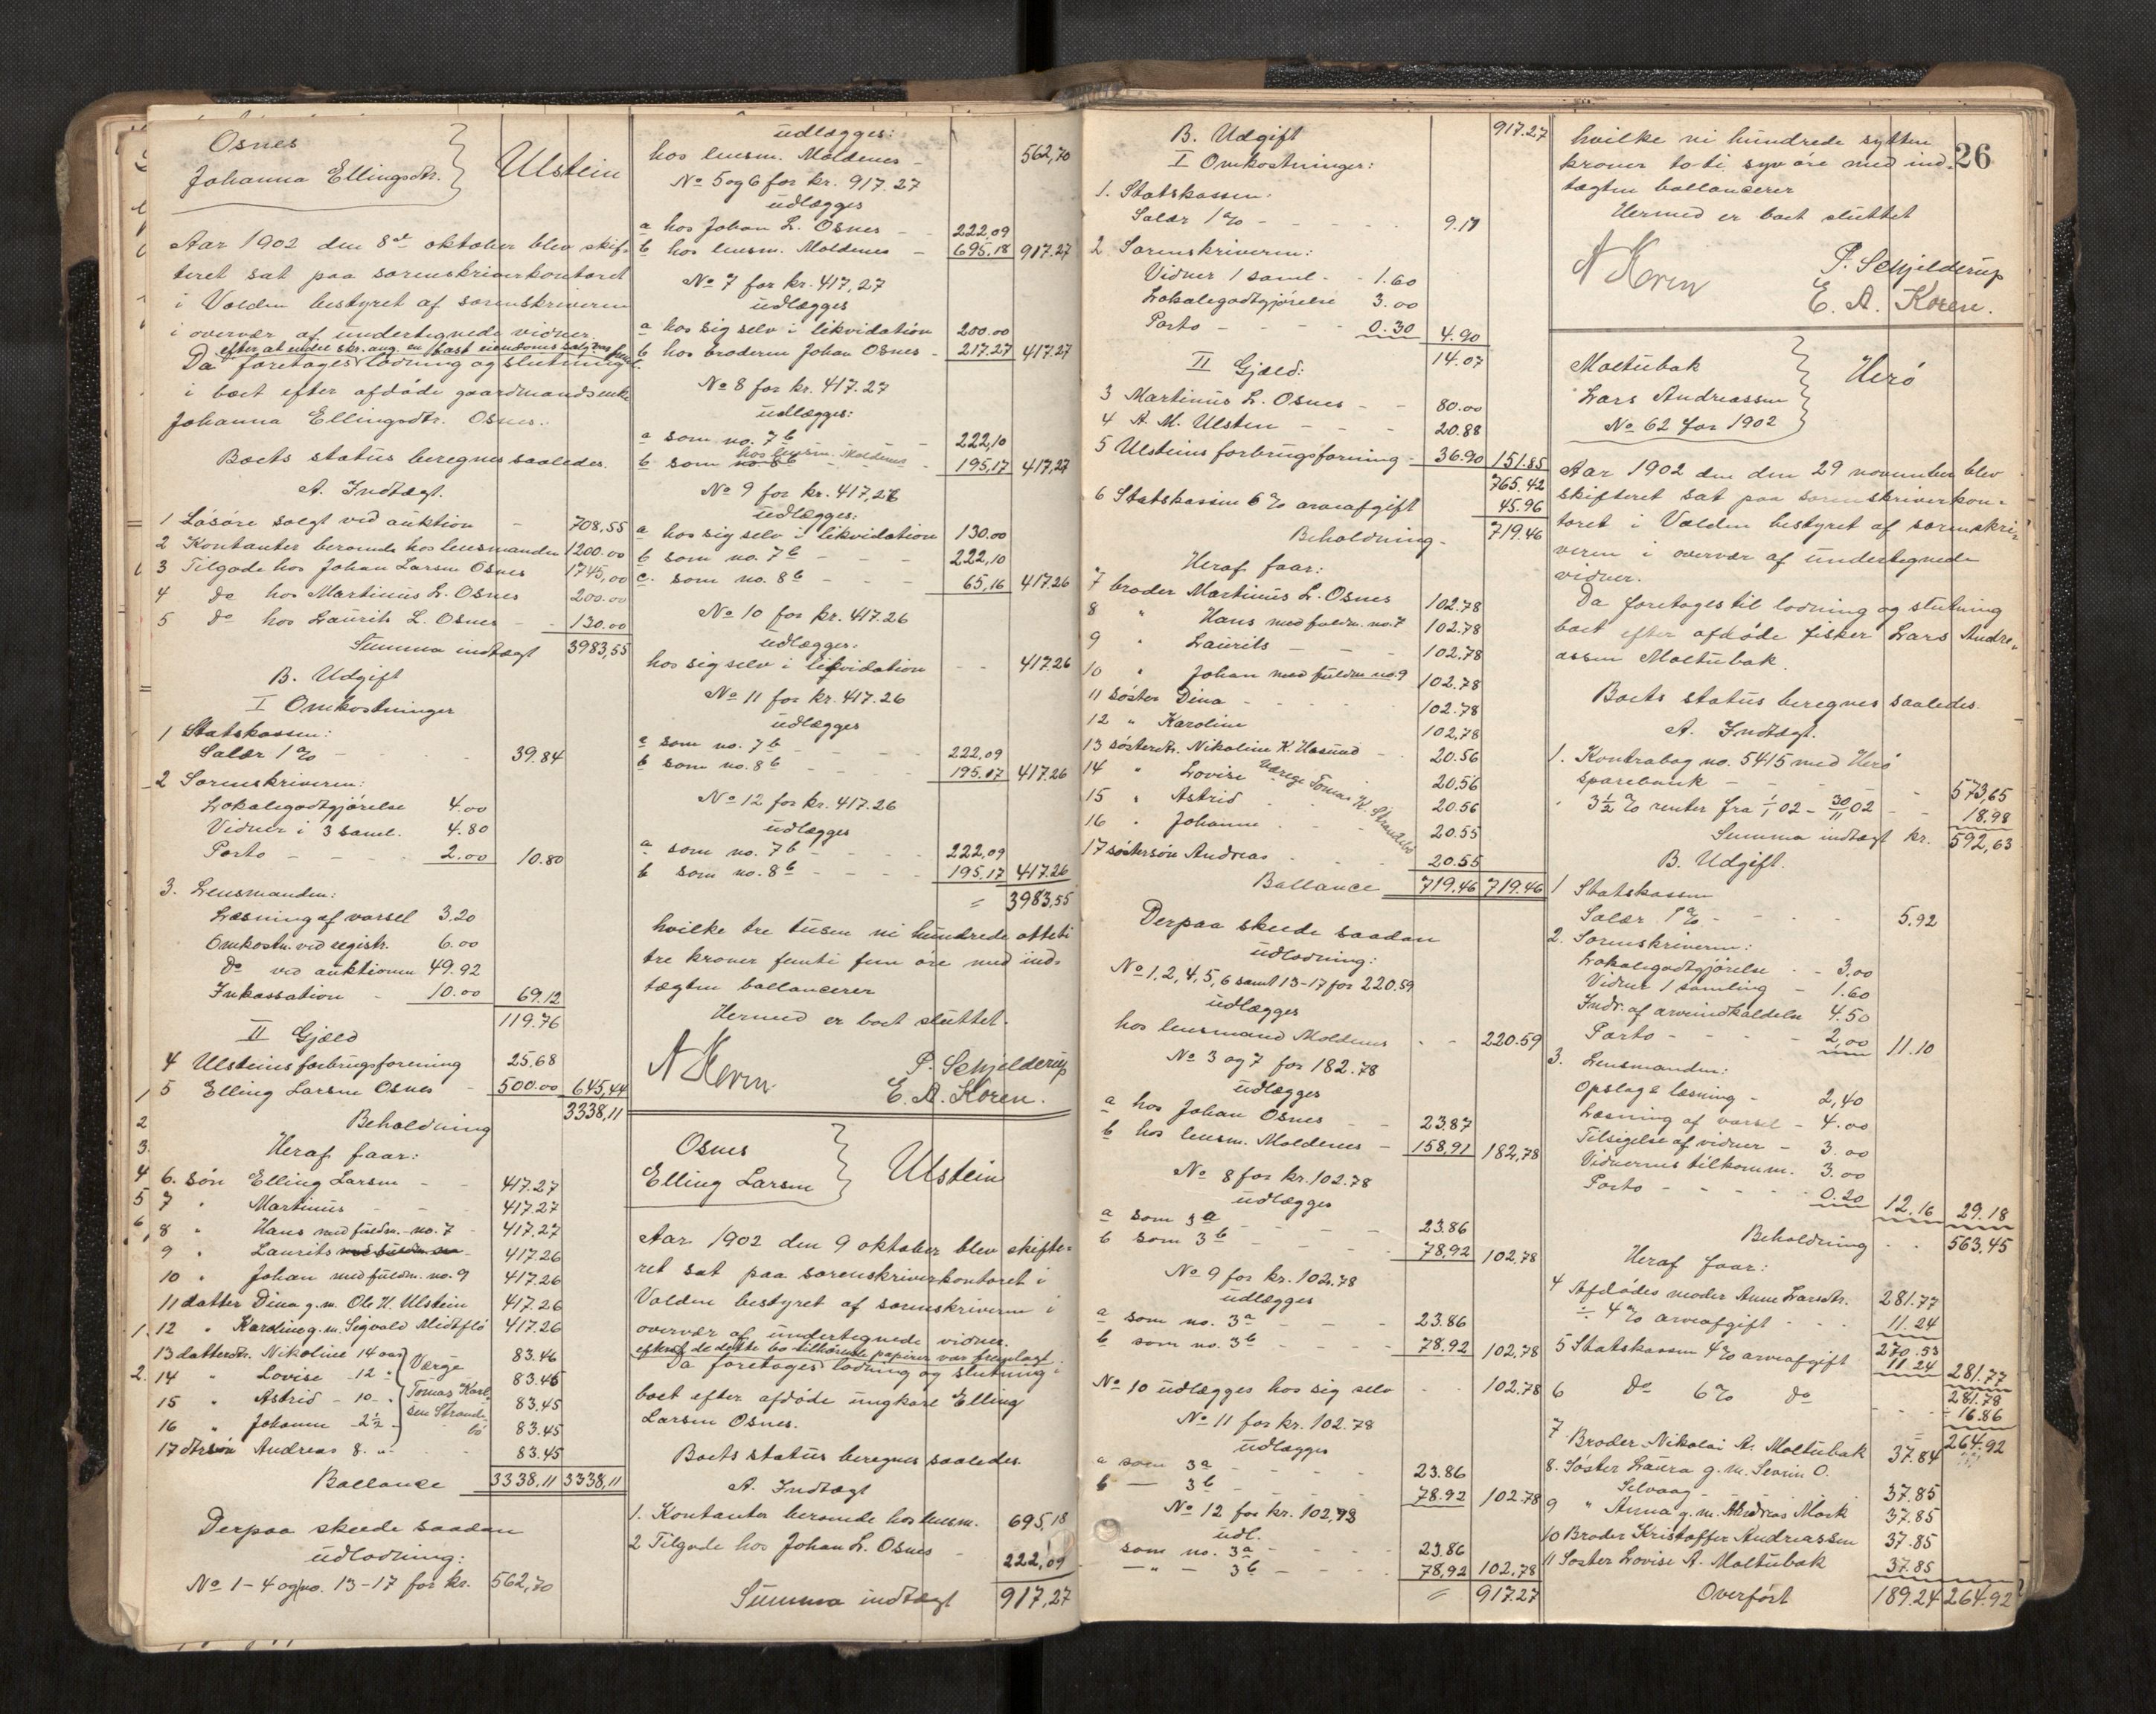 Osnes
Johanna Ellingsdtr. } Ulstein
Aar 1902 den 8de oktober blev skif-
teret sat paa sorenskriverkontoret
i Volden bestyret af sorenskriveren
i overvær af undertegnede vidner.
efter at endel skr. ang. en fast eiendoms salg var freml.
Da foretages lodning og slutning
i boet efter afdöde gaardmandsenke
Johanna Ellingsdtr. Osnes.
Boets status beregnes saaledes.
A. Indtægt.
1 Lösöre solgt ved auktion - 708,55
2 Kontanter beroende hos lensmanden 1200.00
3 Tilgode hos Johan Larsen Osnes 1745,00
4 do hos Martinus L. Osnes 200.00
5 do hos Laurits L. Osnes - - 130.00
Summa indtægt 3983,55
B. Udgift
I Omkostninger
1 Statskassen:
Salær 1 % - - 39.84
2 Sorenskriveren:
Lokalegodtgjörelse 4.00
Vidner i 3 saml. 4.80
Porto - - - 2.00 10.80
3. Lensmanden:
Læsning af varsel 3.20
Omkostn. ved registr. 6.00
do ved auktionen 49.92
Inkassation - 10.00 69.12
119.76
II Gjæld
4 Ulsteins forbrugsforening 25.68
5 Elling Larsen Osnes - 500.00 645,44
3338,11
Beholdning
Heraf faar:
6. sön Elling Larsen - - 417.27
7 " Martinus - - 417.27
8 " Hans med fuldm. no. 7 - 417.27
9 " Laurits 417.26
10 " Johan med fuldm. no. 9 417.26
11 datter Dina g.m. Ole H. Ulstein 417.26
12 " Karoline g.m. Sigvald Midtflö 417.26
13 datterdtr. Nikoline 14 aar } Værge 83.46
14 " Lovise - 12 " 83.46
15 " Astrid - 10 - " Tomas Karl- 83.45
16 " Johanne - 2½ - sen Strande- bö 83.45
17 dtrsön Andreas 8. " - - 83.45
Ballance 3338,11 3338,11
Derpaa skede saadan
udlodning:
No 1-4 og no. 13-17 for kr. 562,70
udlægges:
hos lensm. Moldenes - 562,70
No 5 og 6 for kr. 917.27
udlægges
a hos Johan L. Osnes - - 222.09
b hos lensm. Moldenes - 695.18 917.27
No 7 for kr. 417,27
udlægges
a hos sig selv i likvidation 200.00
b hos broderen Johan Osnes - 217.27 417.27
No 8 for kr. 417.27
udlægges:
a som no. 7 b - 222,10
hos lensm. Moldenes
b som no 8 b - 195.17 417,27
No 9 for kr. 417,26
udlægges:
a hos sig selv i likvidation 130.00
b som no. 7 b - - 222,10
c. som no. 8 b - - - 65,16 417.26
No 10 for kr. 417.26
udlægges:
hos sig selv i likvidation - - 417.26
No 11 for kr. 417.26
udlægges
a som no. 7 b - - - - 222,09
b som no. 8 b - - - - 195.17 417.26
No 12 for kr. 417.26
udlægges
a som no. 7 b - - - - 222,09
b som no. 8 b - - - - 195,17 417.26
" 3983,55
hvilke tre tusen ni hundrede otteti
tre kroner femti fem öre med ind-
tægten ballancerer
Hermed er boet sluttet.
A Koren P. Schjelderup
E. A. Koren.
Osnes
Elling Larsen } Ulstein
Aar 1902 den 9 oktober blev skifte-
ret sat paa sorenskriverkontoret i
Volden bestyret af sorenskriveren i
overvær af undertegnede vidner.
efterat de dette bo tilhörende papirer var fremlagt.
Da foretages lodning og slutning i
boet efter afdöde ungkare Elling
Larsen Osnes.
Boets status beregnes saaledes.
A. Indtægt
1. Kontanter beroende hos lensm. 695,18
2 Tilgode hos Johan L. Osnes - 222,09
Summa indtægt 917,27
B. Udgift 917.27
I Omkostninger:
1. Statskassen:
Salær 1 % - - - - 9.17
2 Sorenskriveren:
Vidner 1 saml. - - 1.60
Lokalegodtgjörelse 3.00
Porto - - - - 0.30 4.90
14.07
II Gjæld:
3 Martinus L. Osnes - - 80.00
4 A. M. Ulsten - - - 20.88
5 Ulsteins forbrugsforening - 36.90 151.85
765.42
6 Statskassen 6 % arveafgift 45.96
Beholdning - 719.46
Heraf faar:
7 broder Martinus L. Osnes 102.78
8 " Hans med fuldm. no. 7 102.78
9 " Laurits - - - 102.78
10 " Johan med fuldm no. 9 102.78
11 söster Dina - - - - 102.78
12 " Karoline 102,78
13 sösterdtr. Nikoline K. Hasund - 20.56
14 " Lovise Værge Tomas K. Strandebö 20,56
15 " Astrid - 20.56
16 " Johanne - - - 20.55
17 söstersön Andreas - - - 20.55
Ballance 719.46 719.46
Derpaa skeede saadan
udlodning:
No 1. 2, 4, 5, 6 samt 13-17 for 220.59
udlægges
hos lensmand Moldenes - - 220.59
No 3 og 7 for 182.78
udlægges
a hos Johan Osnes - - 23.87
b hos lensm. Moldenes - 158,91 182,78
No 8 for kr. 102.78
udlægges
a som 3 a - - - - 23.86
b som 3 b - - - - 78,92 102,78
No 9 for kr. 102,78
udlægges
a som no. 3 a - - - 23.86
b som no. 3 b - - - 78.92 102,78
No 10 udlægges hos sig selv - - 102.78
No 11 for kr. 102.78
udlægges
a som 3 a - - - - 23.86
b — 3 b - - - - 78.92 102.78
No 12 for kr. 102,78
udl.
som no. 3 a - - - - 23.86
— " — 3 b - - - - 78,92 102,78
" 917.27
26
hvilke ni hundrede sytten
kroner to ti syv öre med ind-
tægten ballancerer
Hermed er boet sluttet
A Koren P. Schjelderup
E. A. Koren.
Moltubak
Lars Andreassen } Herö
No 62 for 1902
Aar 1902 den den 29 november blev
skifteret sat paa sorenskriverkon-
toret i Volden bestyret af sorenskri-
veren i overvær af undertegnede
vidner.
Da foretages til lodning og slutning
boet efter afdöde fisker Lars Andre-
assen Moltubak.
Boets status beregnes saaledes.
A. Indtægt.
1. Kontrabog no. 5415 med Herö
sparebank - - - - 573,65
3½ % renter fra 1/1 02 - 30/11 02 - - 18.98
Summa indtægt kr. 592,63
B. Udgift.
1 Statskassen
Salær 1 % - - - - 5.92
2. Sorenskriveren:
Lokalegodtgjörelse - - 3,00
Vidner 1 samling - 1.60
Indr. af arveindkaldelse 4.50
Porto - - - - 2,00 11.10
3. Lensmanden:
Opslag & læsning - 2,40
Læsning af varsel - 4.00
Tilsigelse af vidner - 3.00
Vidnernes tilkomm. 3.00
Porto - - - - 0.20 12.16 29.18
Beholdning - - 563,45
Heraf faar:
4 Afdödes moder Anne Larsdtr. 281.77
÷ 4 % arveafgift - - - 11.24
270.53
5 Statskassen 4 % arveafgift 11.24 281.77
6 do 6 % do 281.78
- - - ÷ 16.86
264.92
7. Broder Nikolai A. Moltubak 37.84
8. Söster Laura g.m. Severin O.
Selvaag - - 37.85
9 " Anna g.m. Andreas Mork 37.85
10 Broder Kristoffer Andreassen 37.85
11 Söster Lovise A. Moltubak 37.85
Overfört 189.24 264.92